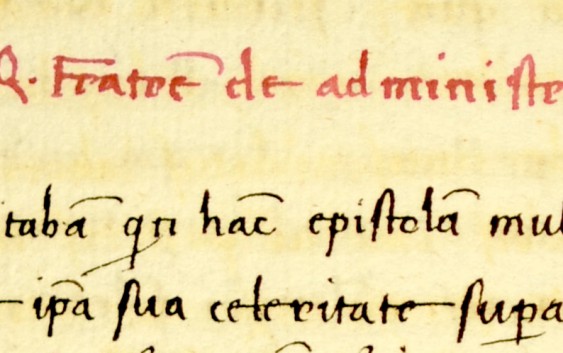 Q. Fratrē de administr
tabā qn hāc epistolā mul
ipā sua celeritate supa